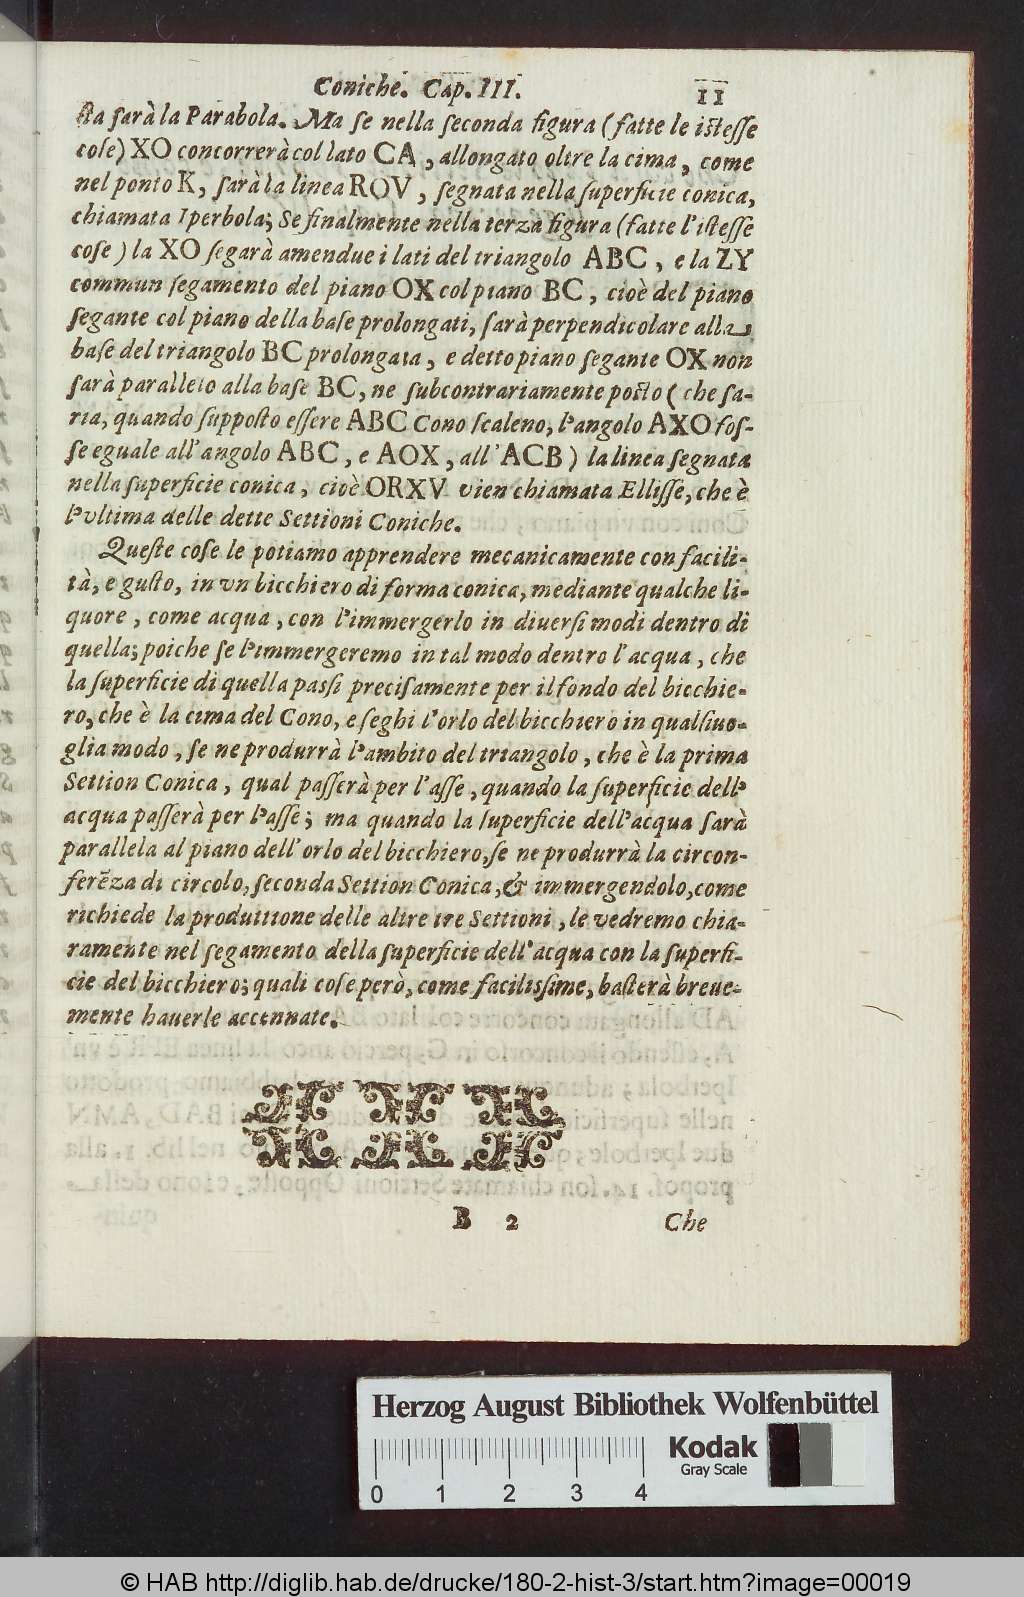 Coniche. Cap. III. 11
ſta ſarà la Parabola. Ma ſe nella ſeconda figura (fatte le iſteſſe
coſe) XO concorrerà col lato CA, allongato oltre la cima, come
nel ponto K, ſarà la linea ROV, ſegnata nella ſuperficie conica,
chiamata Iperbola; Se finalmente nella terza figura (fatte l'iſteſſe
coſe) la XO ſegarà amendue i lati del triangolo ABC, e la ZY
commun ſegamento del piano OX col piano BC, cioè del piano
ſegante col piano della baſe prolongati, ſarà perpendicolare alla
baſe del triangolo BC prolongata, e detto piano ſegante OX non
ſarà paralleto alla baſe BC, ne ſubcontrariamente poſto (che ſa-
ria, quando ſuppoſto eſſere ABC Cono ſcaleno, l'angolo AXO foſ-
ſe eguale all' angolo ABC, e AOX, all' ACB) la linea ſegnata
nella ſuperficie conica, cioè ORXV vien chiamata Elliſſe, che è
l'vltima delle dette Settioni Coniche.
Queſte coſe le potiamo apprendere mecanicamente con facili-
tà, e guſto, in vn bicchiero di forma conica, mediante qualche li-
quore, come acqua, con l'immergerlo in diuerſi modi dentro di
quella; poiche ſe l'immergeremo in tal modo dentro l'acqua, che
la ſuperficie di quella paſſi preciſamente per il fondo del bicchie-
ro, che è la cima del Cono, e ſeghi l'orlo del bicchiero in qualſiuo-
glia modo, ſe ne produrrà l'ambito del triangolo, che è la prima
Settion Conica, qual paſſerà per l'aſſe, quando la ſuperficie dell'
acqua paſſerà per l'aſſe; ma quando la ſuperficie dell'acqua ſarà
parallela al piano dell' orlo del bicchiero, ſe ne produrrà la circon-
ferēza di circolo, ſeconda Settion Conica, & immergendolo, come
richiede la produttione delle altre tre Settioni, le vedremo chia-
ramente nel ſegamento della ſuperficie dell' acqua con la ſuperfi-
cie del bicchiero; quali coſe però, come faciliſſime, baſterà breue-
mente hauerle accennate.
B 2 Che
Herzog August Bibliothek Wolfenbüttel
0 1 2 3 4
Kodak
Gray Scale
© HAB http://diglib.hab.de/drucke/180-2-hist-3/start.htm?image=00019